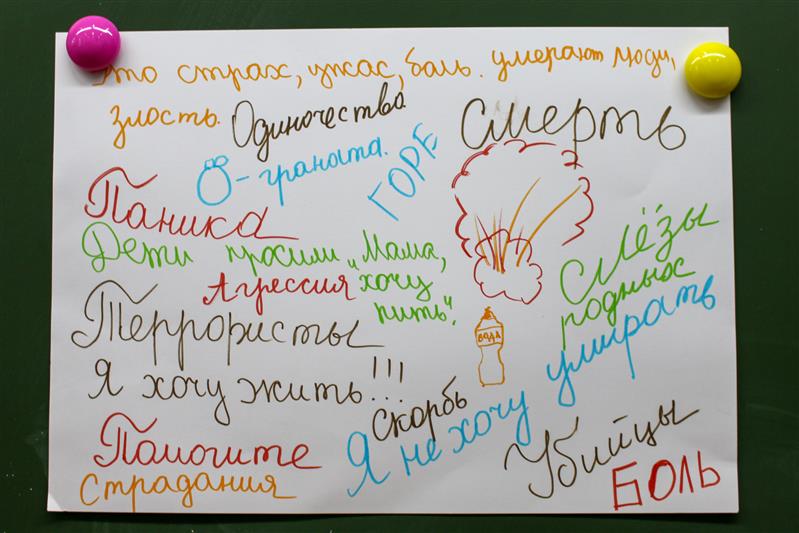 это страх, ужас, боль. умерают люди,
злость.
Одиночества
Смерть
- граната.
ГОРЕ
Паника
Дети просили „Мама,
хочу
пить“.
Агрессия
Слёзы
родных
Террористы
ВОДА
Я хочу жить!!!
Скорбь
Я не хочу умирать
Помогите
Убийцы
Страдания
БОЛЬ